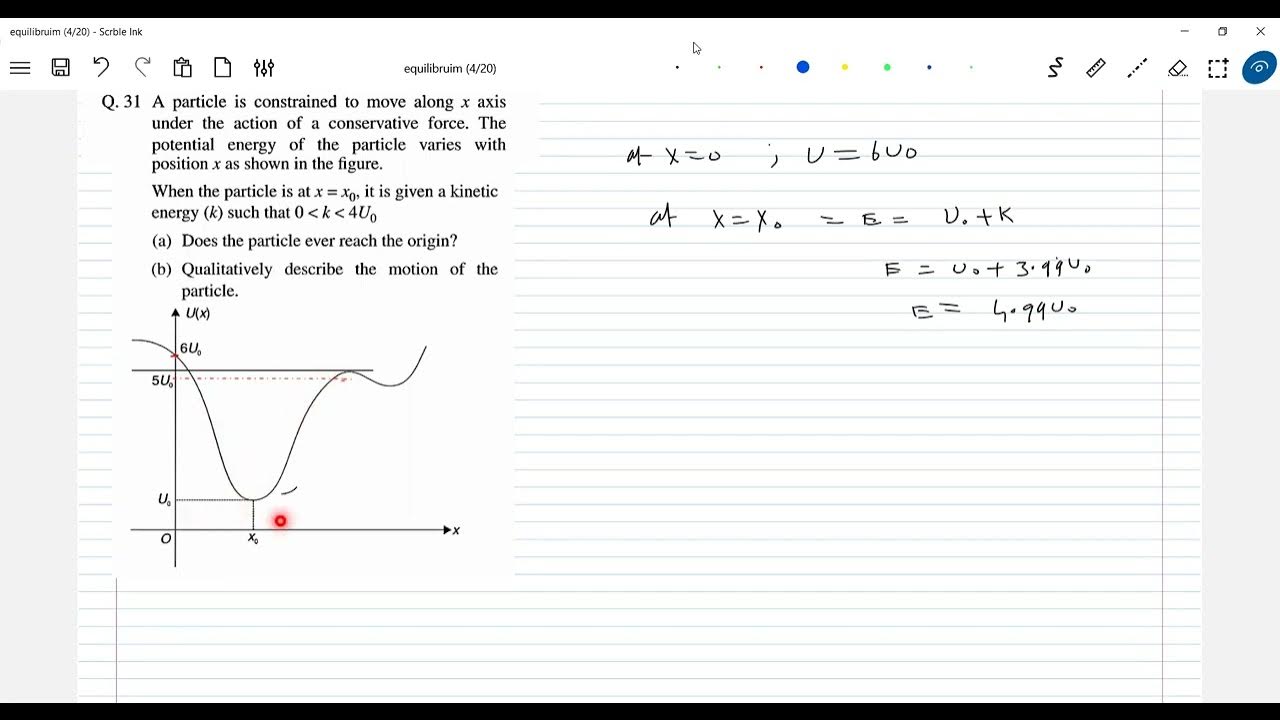 equilibruim (4/20) - Scrble Ink
equilibruim (4/20)
Q. 31 A particle is constrained to move along x axis
under the action of a conservative force. The
potential energy of the particle varies with
position x as shown in the figure.
When the particle is at x = x₀, it is given a kinetic
energy (k) such that 0 < k < 4U₀
(a) Does the particle ever reach the origin?
(b) Qualitatively describe the motion of the
particle.
U(x)
6U₀
5U₀
U₀
O
x₀
x
at x=0 ; U = 6U₀
at x=x₀ = E = U₀+K
E = U₀+ 3.99U₀
E = 4.99U₀